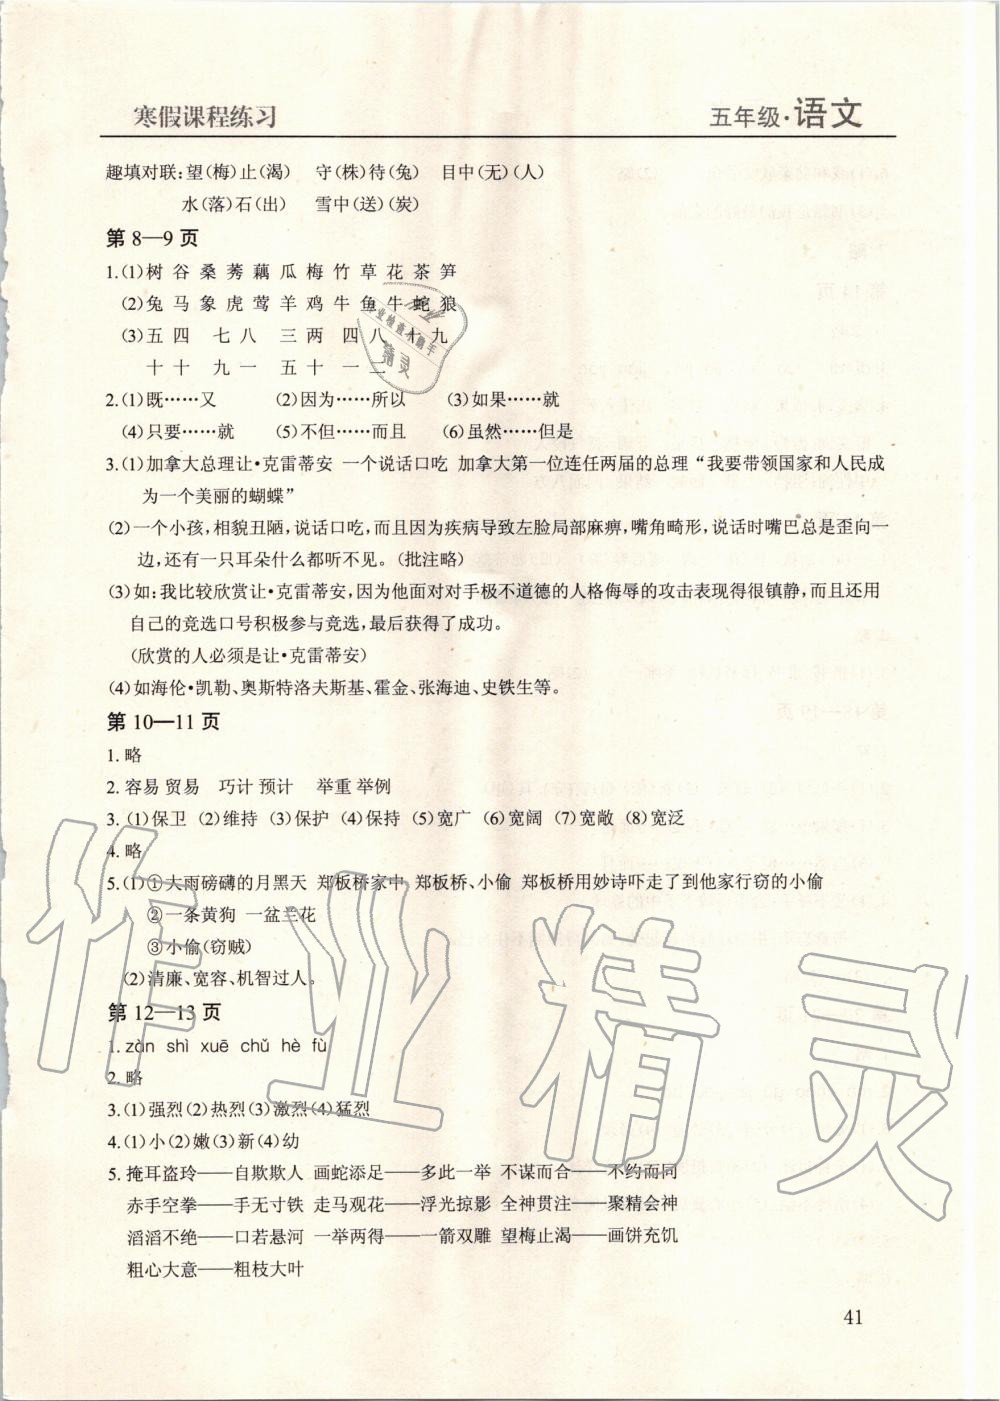 寒假课程练习 五年级·语文
趣填对联:望(梅)止(渴) 守(株)待(兔) 目中(无)(人)
水(落)石(出) 雪中(送)(炭)
第8—9页
1.(1)树 谷 桑 莠 藕 瓜 梅 竹 草 花 茶 笋
(2)兔 马 象 虎 莺 羊 鸡 牛 鱼 牛 蛇 狼
(3)五 四 七 八 三 两 四 八 十 九
十 十 九 一 五 十 一 二
2.(1)既……又 (2)因为……所以 (3)如果……就
(4)只要……就 (5)不但……而且 (6)虽然……但是
3.(1)加拿大总理让·克雷蒂安 一个说话口吃 加拿大第一位连任两届的总理“我要带领国家和人民成
为一个美丽的蝴蝶”
(2)一个小孩,相貌丑陋,说话口吃,而且因为疾病导致左脸局部麻痹,嘴角畸形,说话时嘴巴总是歪向一
边,还有一只耳朵什么都听不见。(批注略)
(3)如:我比较欣赏让·克雷蒂安,因为他面对对手极不道德的人格侮辱的攻击表现得很镇静,而且还用
自己的竞选口号积极参与竞选,最后获得了成功。
(欣赏的人必须是让·克雷蒂安)
(4)如海伦·凯勒、奥斯特洛夫斯基、霍金、张海迪、史铁生等。
第10—11页
1.略
2.容易 贸易 巧计 预计 举重 举例
3.(1)保卫 (2)维持 (3)保护 (4)保持 (5)宽广 (6)宽阔 (7)宽敞 (8)宽泛
4.略
5.(1)①大雨磅礴的月黑天 郑板桥家中 郑板桥、小偷 郑板桥用妙诗吓走了到他家行窃的小偷
②一条黄狗 一盆兰花
③小偷(窃贼)
(2)清廉、宽容、机智过人。
第12—13页
1.zàn shì xuē chǔ hè fù
2.略
3.(1)强烈(2)热烈(3)激烈(4)猛烈
4.(1)小(2)嫩(3)新(4)幼
5.掩耳盗玲——自欺欺人 画蛇添足——多此一举 不谋而合——不约而同
赤手空拳——手无寸铁 走马观花——浮光掠影 全神贯注——聚精会神
滔滔不绝——口若悬河 一举两得——一箭双雕 望梅止渴——画饼充饥
粗心大意——粗枝大叶
41
作业精灵